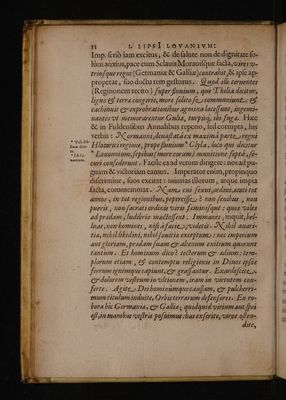 32 I. LIPSI LOVANIVM:
Imp. scribam excitus, & de salute non de dignitate so-
lùm anxius, pace cum Sclauis Morauisque facta, vires v-
triusque regni (Germaniæ & Galliæ) contrahit, & ipse ap-
properat, suo ductu rem gesturus. Quod illi cernentes
(Reginonem recito) super fluuium, quo Thilia dicitur,
ligno & terra congerie, more solito se communiunt: &
cachinnis & exprobrationibus agmina lacessunt, ingemi-
nantes vt memorarentur Guliæ, turpisq́; ibi fugæ. Hæc
& in Fuldensibus Annalibus repeto, sed corrupta, his
verbis: Normanni, deuastata ex maxima parte, regni
Hlotarici regione, prope fluuium * Chyla, loco qui dicitur
* Louonnium, sepibus (more eorum) munitione septa, se-
curi consederunt. Facile ea ad verum dirigere: nos ad pu-
gnam & victoriam eamus. Imperator enim, propinquo
iam
suos excitat: iniurias illorum, atque impia
facta, commemorat.
annos, in tot regionibus, repetisse? non senibus, non
pueris, non sacrati ordinis viris feminisque: quas vides
ad prædam, ludibrio mactassent. Immanes, inquit, bel-
luas, non homines, nisi à facie, videtis. Nihil auari-
tia, nihil libidini, nihil sæuitiæ exceptum: nec imperium
aut gloriam, prædam suam & alienum exitium quærunt
tantum. Et hominum dico? tectorum & ædium: tem-
plorum etiam, & contemptu religionis in Diuos ipsos
ferrum ignemque capiunt, & grassantur. Exardescite,
& dolorem vestrum in vltionem, iram in virtutem con-
ferte. Agite Dei hominumque caussam, & pulcherri-
mum titulum induite, Orbis terrarum defensores. En ro-
bora hîc Germaniæ, & Galliæ, quidquid virium aut spei
est, in manibus vestris posuimus: has exserite, viros osten-
dite,